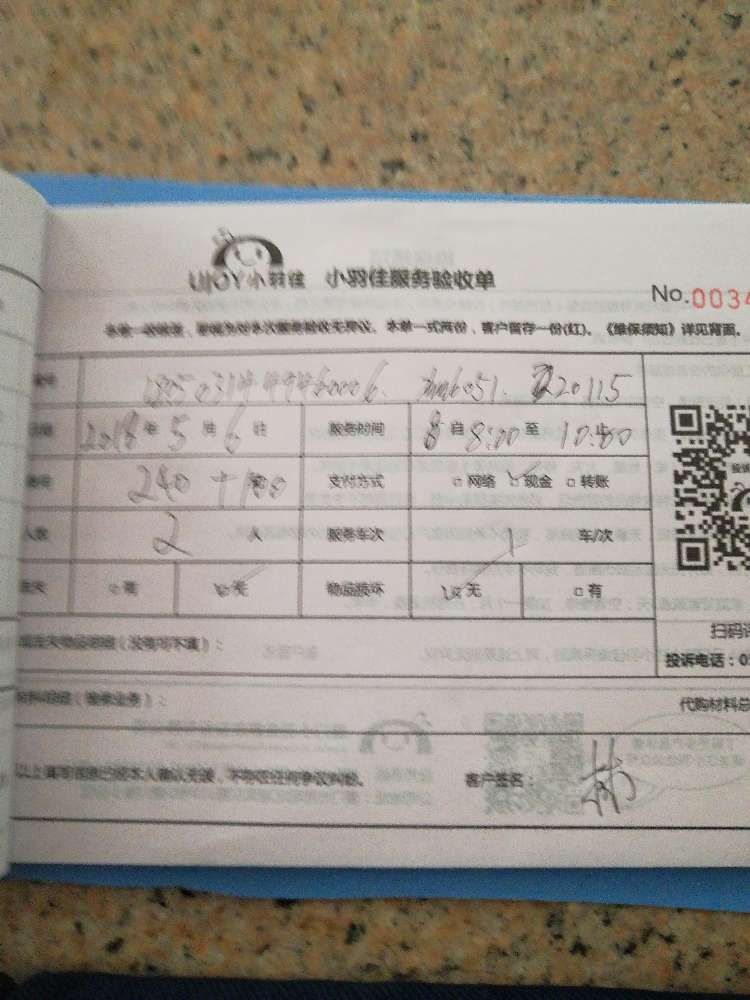 UJOY小羽佳 小羽佳服务验收单
No.0034
本单一经签字，即视为对本次服务验收无异议。本单一式两份，客户留存一份(红)。《维保须知》详见背面。
2018年5月6日 服务时间 自8:00至
240+100 支付方式 □网络 ☑现金 □转账
人数 2人 服务车次 1车/次
□有 ☑无 物品损坏 ☑无 □有
丢失物品明细（没有可不填）：
扫码
投诉电话：0
材料明细（维修业务）：
代购材料总
以上填写信息已经本人确认无误，不存在任何争议纠纷。 客户签名：